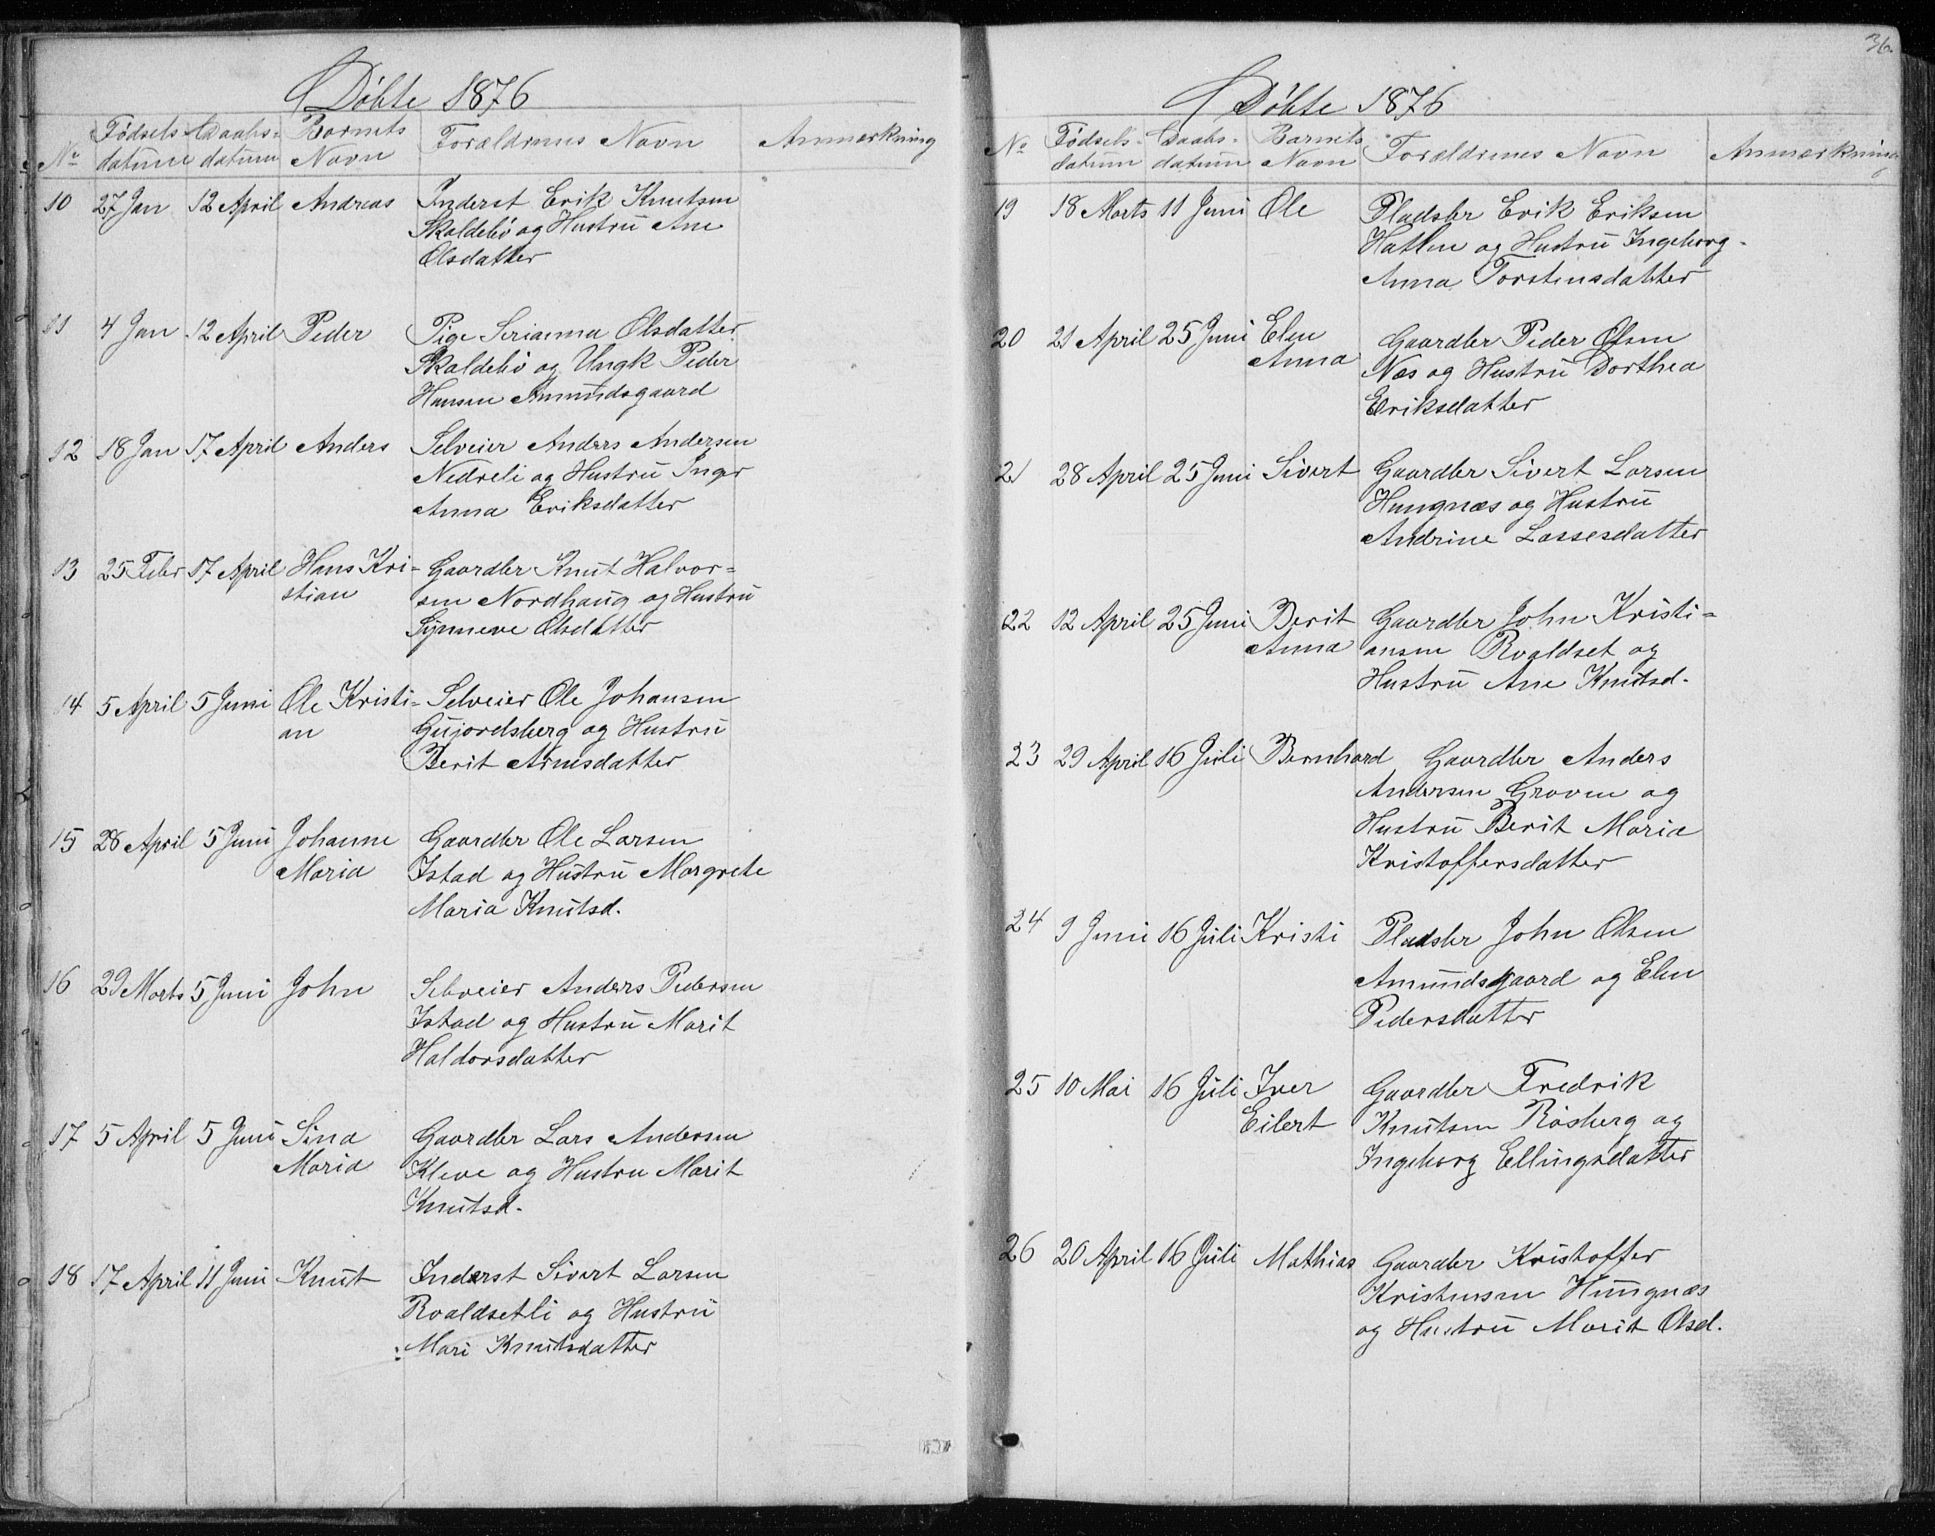 Døbte 1876
No Fødsels- datum Daabs- datum Barnets Navn Forældrenes Navn Anmærkning
10 27 Jan 12 April Andreas Inderst Erik Knutsen
Skaldebø og Hustru Ane
Olsdatter
11 4 Jan 12 April Peder Pige Serianna Olsdatter
Skaldebø og Ungk Peder
Hansen Amundsgaard
12 18 Jan 17 April Anders Selveier Anders Andersen
Nedreli og Hustru Inger
Anna Eriksdatter
13 25 Febr 17 April Hans Kri- Gaardbr Knut Halvor-
stian sen Nordhaug og Hustru
Synneve Olsdatter
14 5 April 5 Juni Ole Kristi- Selveier Ole Johansen
an Gujordsberg og Hustru
Berit Arnesdatter
15 28 April 5 Juni Johanne Gaardbr Ole Larsen
Maria Istad og Hustru Margrete
Maria Knutsd.
16 29 Marts 5 Juni John Selveier Anders Pedersen
Istad og Hustru Marit
Haldorsdatter
17 5 April 5 Juni Sina Gaardbr Lars Andersen
Maria Kleve og Hustru Marit
Knutsd.
18 17 April 11 Juni Knut Inderst Sivert Larsen
Roaldsetli og Hustru
Mari Knutsdatter
36.
Døbte 1876
No Fødsels- datum Daabs- datum Barnets Navn Forældrenes Navn Anmærkning
19 18 Marts 11 Juni Ole Pladsbr Erik Eriksen
Hatlen og Hustru Ingeborg-
Anna Torstensdatter
20 21 April 25 Juni Elen Gaardbr Peder Olsen
Anna Næs og Hustru Dorthea
Eriksdatter
21 28 April 25 Juni Sivert Gaardbr Sivert Larsen
Hungnæs og Hustru
Andrine Lassesdatter
22 12 April 25 Juni Berit Gaardbr John Kristi-
Anna ansen Roaldset og
Hustru Ane Knutsd.
23 29 April 16 Juli Bernhard Gaardbr Anders
Andersen Groven og
Hustru Berit Maria
Kristoffersdatter
24 9 Juni 16 Juli Kristi Pladsbr John Olsen
Amundsgaard og Elen
Pedersdatter
25 10 Mai 16 Juli Iver Gaardbr Fredrik
Eilert Knutsen Røsberg og
Ingeborg Ellingsdatter
26 20 April 16 Juli Mathias Gaardbr Kristoffer
Kristensen Hungnæs
og Hustru Marit Olsd.